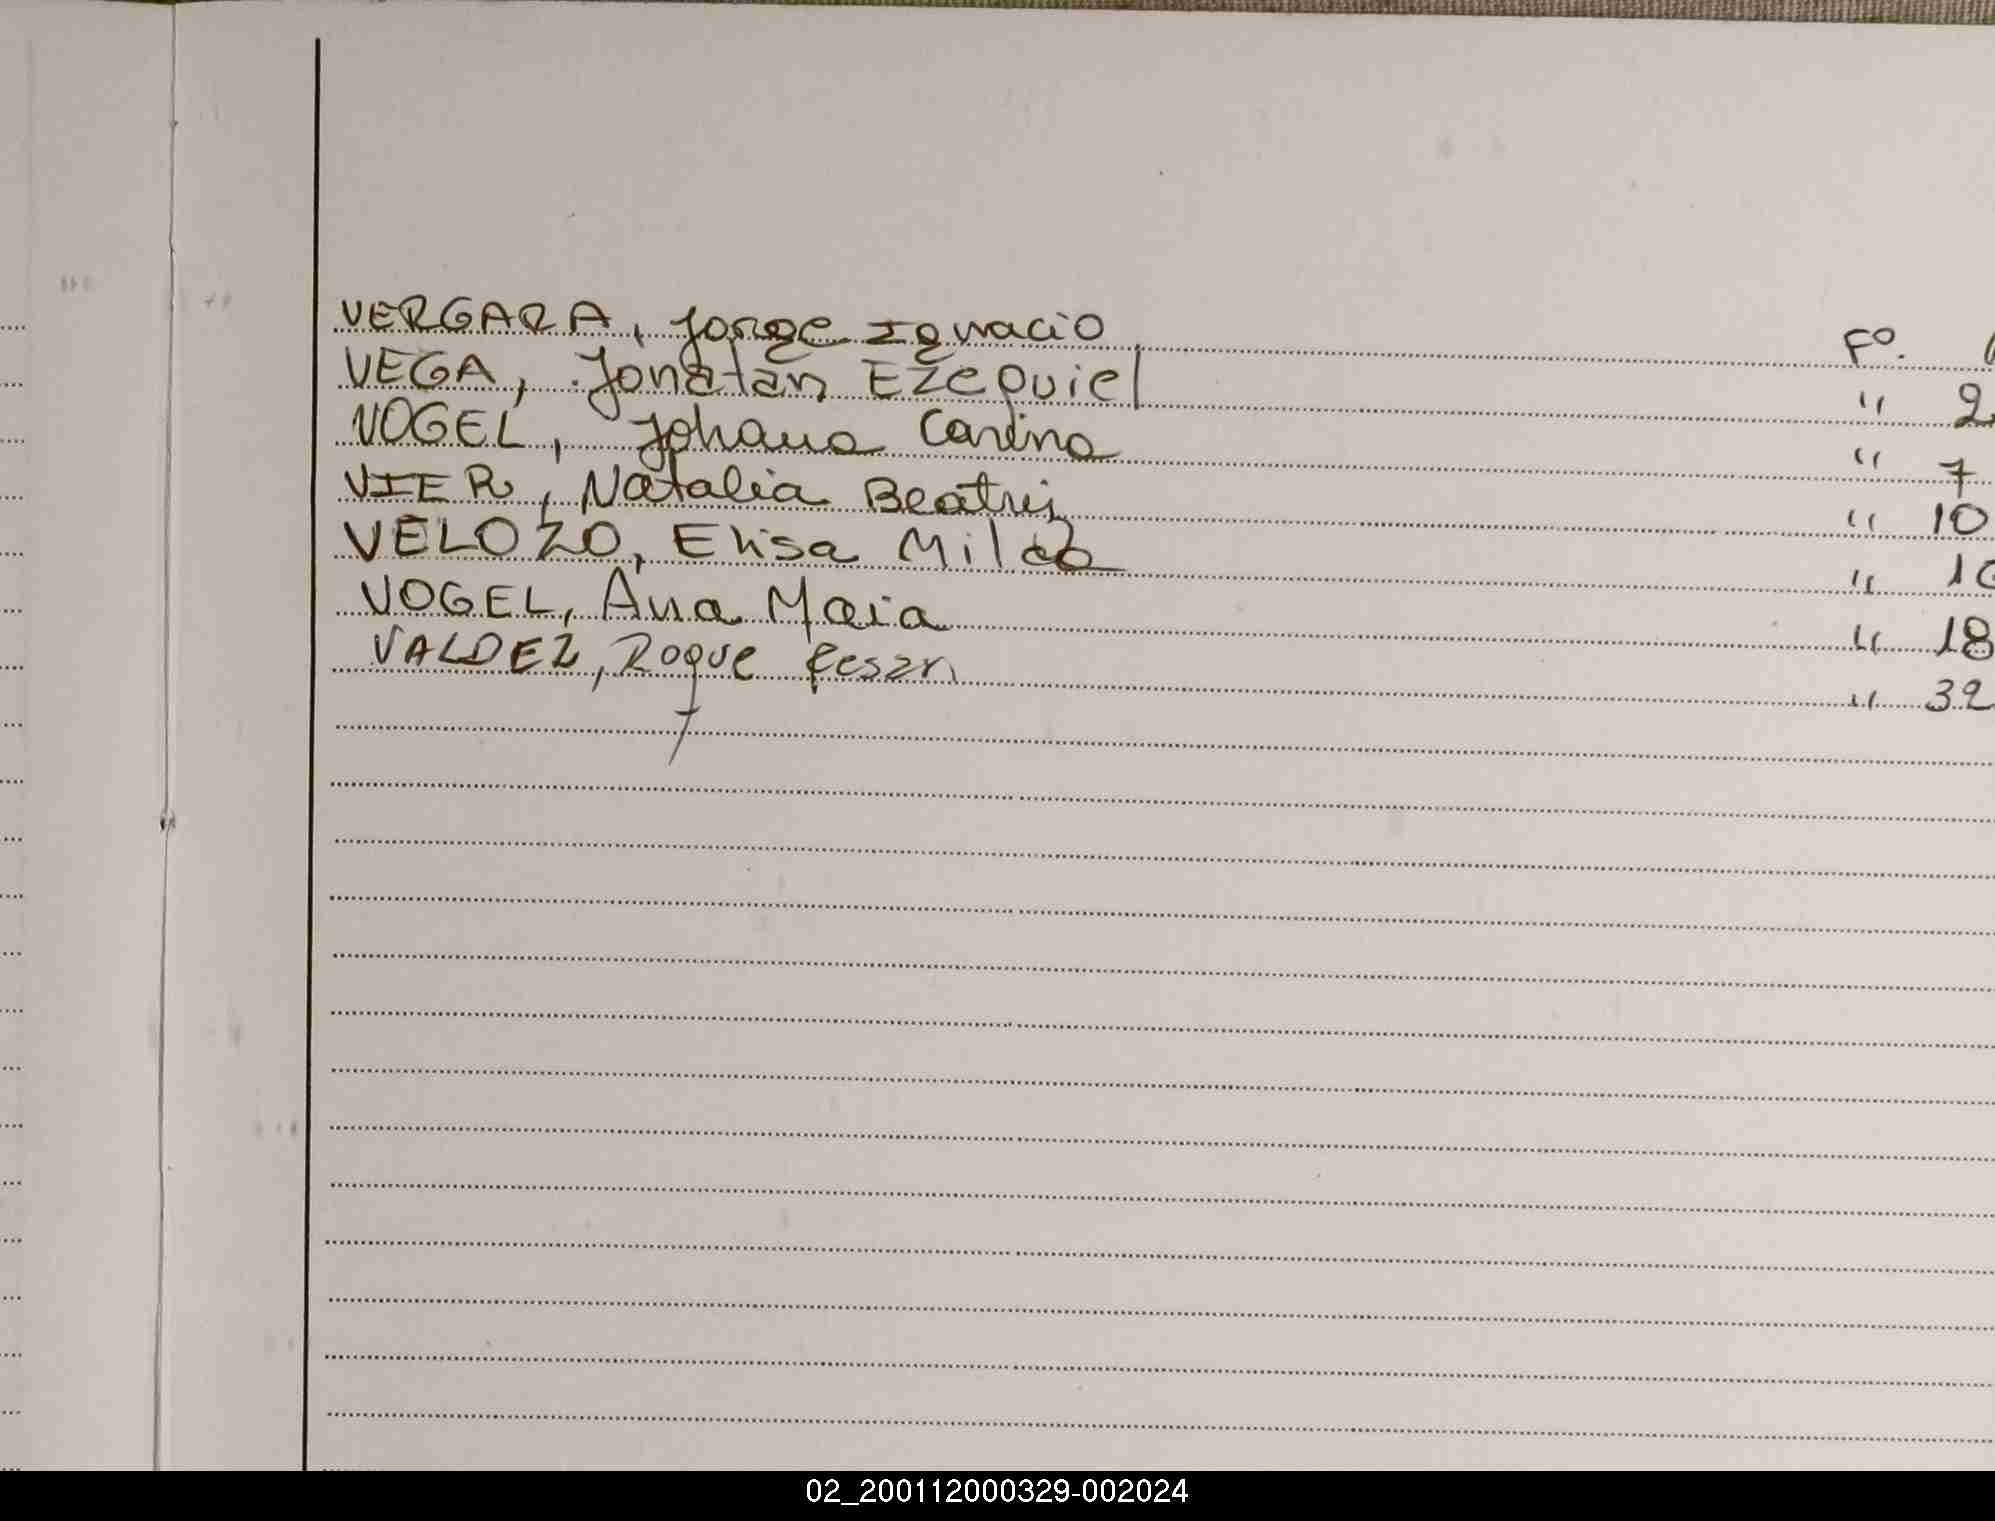 VERGARA, Jorge Ignacio Fº.
VEGA, Jonatan Ezequiel " 2
VOGEL, Johana Carina " 7
VIER, Natalia Beatriz " 10
VELOZO, Elisa Milca "
VOGEL, Ana Maria " 18
VALDEZ, Roque Cesar " 32
02_200112000329-002024